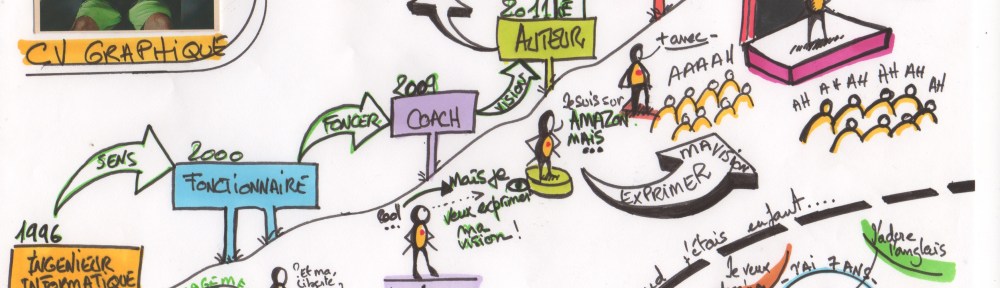 CV GRAPHIQUE
2011
AUTEUR
VISION
2007
COACH
FONCER
2000
FONCTIONNAIRE
SENS
1996
INGENIEUR
INFORMATIQUE
+ avec -
AAAAH
AH AH AH AH AH AH
Je suis sur
AMAZON
MAIS
...
MA VISION
EXPRIMER
Cool
...
Mais je
veux exprimer
ma
vision !
? Et ma
liberté
J'étais enfant ....
J'adore
l'anglais
J'ai 7 ANS
Je veux